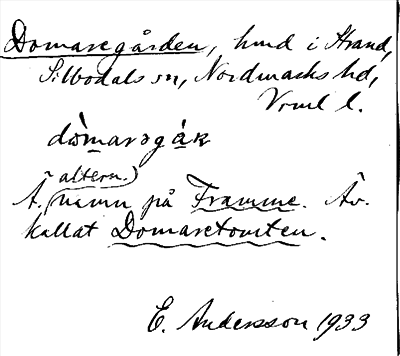 Domaregården, hmd i Strand,
Silbodals sn, Nordmarks hd,
Vrml l.
dὼmarəgàʀ
Ä. (altern.) namn på Framme. Äv.
kallat Domaretomten.
E. Andersson 1933